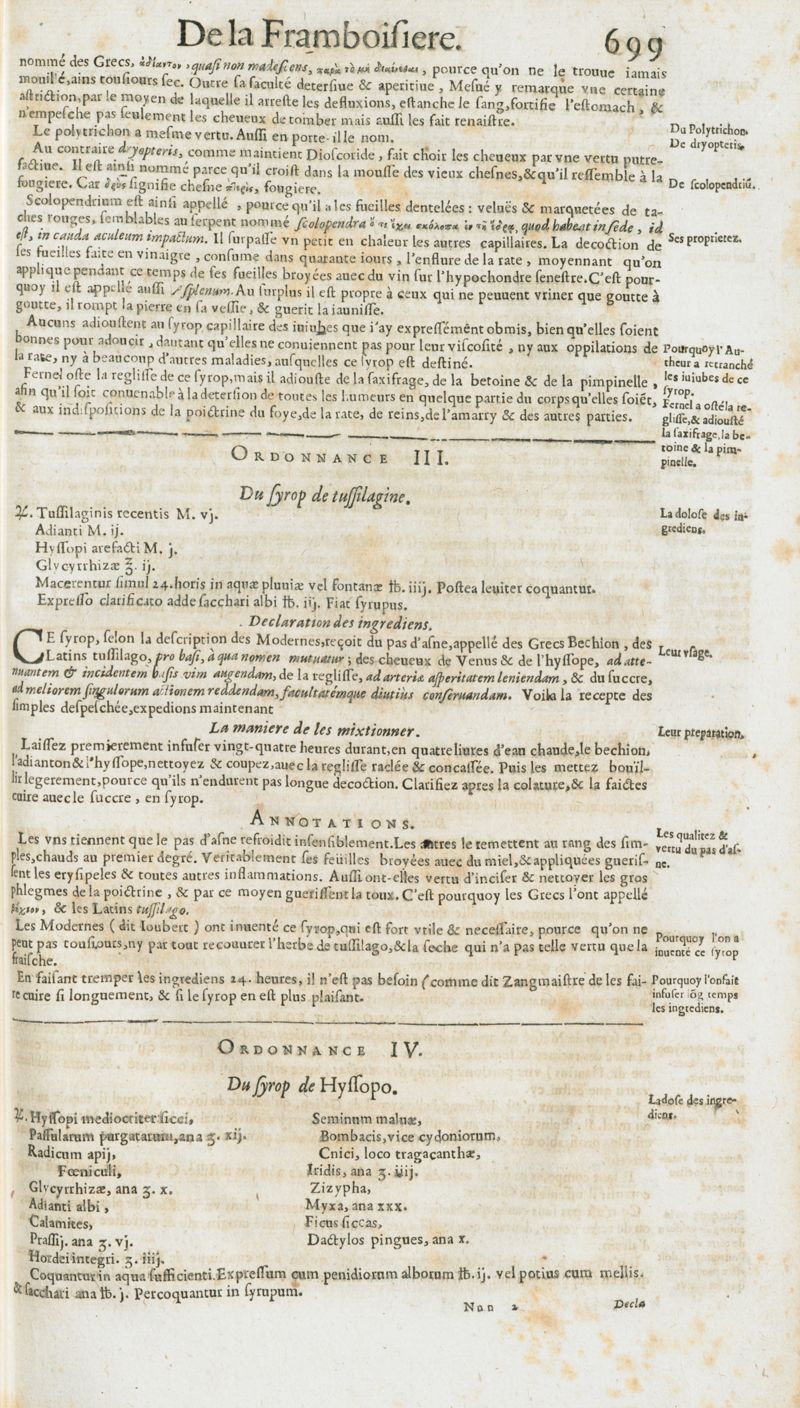 De la Framboisiere. 699
nommé des Grecs, quasi non madescens, pource qu'on ne le trouue iamais
mouillé, ains tousiours sec. Outre sa faculté detersiue & aperitiue, Mesué y remarque vne certaine
astriction, par le moyen de laquelle il arreste les defluxions, estanche le sang, fortifie l'estomach, &
n'empesche pas seulement les cheueux de tomber mais aussi les fait renaistre.
Le polytrichon a mesme vertu. Aussi en porte-il le nom.
Du Polytrichon.
Au contraire dryopteris, comme maintient Dioscoride, fait choir les cheueux par vne vertu putre-
De dryopteris.
factiue. Il est ainsi nommé parce qu'il croist dans la mousse des vieux chesnes, & qu'il ressemble à la
fougiere. Car δρῦς signifie chesne πτερὶς, fougiere.
De scolopendriū.
Scolopendrium est ainsi appellé, pource qu'il a les fueilles dentelées: veluës & marquetées de ta-
ches rouges, semblables au serpent nommé scolopendra quod habeat in sede, id
est, in cauda aculeum impactum. Il surpasse vn petit en chaleur les autres capillaires. La decoction de
Ses proprietez.
ses fueilles faite en vinaigre, consume dans quarante iours, l'enflure de la rate, moyennant qu'on
applique pendant ce temps de ses fueilles broyées auec du vin sur l'hypochondre senestre. C'est pour-
quoy il est appellé aussi Asplenum. Au surplus il est propre à ceux qui ne peuuent vriner que goutte à
goutte, il rompt la pierre en sa vessie, & guerit la iaunisse.
Aucuns adioustent au syrop capillaire des iniubes que i'ay expressémēt obmis, bien qu'elles soient
bonnes pour adoucir, dautant qu'elles ne conuiennent pas pour leur viscosité, ny aux oppilations de
la rate, ny à beaucoup d'autres maladies, ausquelles ce syrop est destiné.
Pourquoy l'Au-
theur a retranché
les iuiubes de ce
syrop.
Fernel oste la reglisse de ce syrop, mais il adiouste de la saxifrage, de la betoine & de la pimpinelle,
afin qu'il soit conuenable à la detersion de toutes les humeurs en quelque partie du corps qu'elles soiēt,
& aux indispositions de la poictrine du foye, de la rate, de reins, de l'amarry & des autres parties.
Fernel a osté la re-
glisse, & adiousté
la saxifrage, la be-
toine & la pim-
pinelle.
ORDONNANCE III.
Du syrop de tussilagine.
℞. Tussilaginis recentis M. vj.
La dolose des in-
grediens.
Adianti M. ij.
Hyssopi arefacti M. j.
Glycyrrhizæ ℥. ij.
Macerentur simul 24. horis in aquæ pluuiæ vel fontanæ ℔. iiij. Postea leuiter coquantur.
Expresso clarificato adde sacchari albi ℔. iij. Fiat syrupus.
Declaration des ingrediens.
CE syrop, selon la description des Modernes, reçoit du pas d'asne, appellé des Grecs Bechion, des
Leur vsage.
Latins tussilago, pro basi, à qua nomen mutuatur; des cheueux de Venus & de l'hyssope, ad atte-
nuantem & incidentem basis vim augendam, de la reglisse, ad arteria asperitatem leniendam, & du succre,
ad meliorem singulorum actionem reddendam, facultatémque diutius conseruandam. Voila la recepte des
simples despeschée, expedions maintenant
La maniere de les mixtionner.
Leur preparation.
Laissez premierement infuser vingt-quatre heures durant, en quatre liures d'eau chaude, le bechion,
l'adianton & l'hyssope, nettoyez & coupez, auec la reglisse raclée & concassée. Puis les mettez bouïl-
lir legerement, pource qu'ils n'endurent pas longue decoction. Clarifiez apres la colature, & la faictes
cuire auec le succre, en syrop.
ANNOTATIONS.
Les vns tiennent que le pas d'asne refroidit insensiblement. Les autres le remettent au rang des sim-
ples, chauds au premier degré. Veritablement ses feüilles broyées auec du miel, & appliquées gueris-
sent les erysipeles & toutes autres inflammations. Aussi ont-elles vertu d'inciser & nettoyer les gros
phlegmes de la poictrine, & par ce moyen guerissent la toux. C'est pourquoy les Grecs l'ont appellé
βήχιον, & les Latins tussilago.
Les qualitez &
vertu du pas d'as-
ne.
Les Modernes (dit Ioubert) ont inuenté ce syrop, qui est fort vtile & necessaire, pource qu'on ne
peut pas tousiours, ny par tout recouurer l'herbe de tussilago, & la seche qui n'a pas telle vertu que la
fraische.
Pourquoy l'on a
inuenté ce syrop
En faisant tremper les ingrediens 24. heures, il n'est pas besoin (comme dit Zangmaistre de les fai-
re cuire si longuement, & si le syrop en est plus plaisant.
Pourquoy l'onfait
infuser lōg temps
les ingrediens.
ORDONNANCE IV.
Du syrop de Hyssopo.
La dose des ingre-
diens.
℞. Hyssopi mediocriter sicci,
Passularum purgatarum, ana ʒ. xij.
Radicum apij,
Fœniculi,
Glycyrrhizæ, ana ʒ. x.
Adianti albi,
Calamites,
Prassij. ana ʒ. vj.
Hordei integri. ʒ. iiij.
Seminum maluæ,
Bombacis, vice cydoniorum,
Cnici, loco tragacanthæ,
Iridis, ana ʒ. iiij.
Zizypha,
Myxa, ana xxx.
Ficus siccas,
Dactylos pingues, ana x.
Coquantur in aqua sufficienti. Expressum cum penidiorum alborum ℔. ij. vel potius cum mellis.
& sacchari ana ℔. j. Percoquantur in syrupum.
Nnn 2 Decla